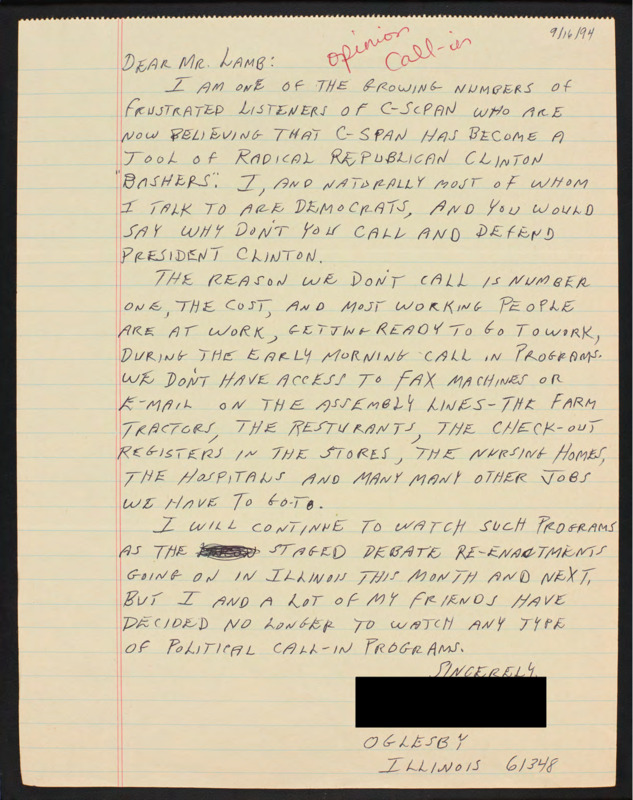 9/16/94
opinion
Call-in
DEAR MR. LAMB:
I AM ONE OF THE GROWING NUMBERS OF
FRUSTRATED LISTENERS OF C-SCPAN WHO ARE
NOW BELIEVING THAT C-SPAN HAS BECOME A
TOOL OF RADICAL REPUBLICAN CLINTON
"BASHERS". I, AND NATURALLY MOST OF WHOM
I TALK TO ARE DEMOCRATS, AND YOU WOULD
SAY WHY DON'T YOU CALL AND DEFEND
PRESIDENT CLINTON.
THE REASON WE DON'T CALL IS NUMBER
ONE, THE COST, AND MOST WORKING PEOPLE
ARE AT WORK, GETTING READY TO GO TO WORK,
DURING THE EARLY MORNING CALL IN PROGRAMS.
WE DON'T HAVE ACCESS TO FAX MACHINES OR
E-MAIL ON THE ASSEMBLY LINES-THE FARM
TRACTORS, THE RESTURANTS, THE CHECK-OUT
REGISTERS IN THE STORES, THE NURSING HOMES,
THE HOSPITALS AND MANY MANY OTHER JOBS
WE HAVE TO GO TO.
I WILL CONTINUE TO WATCH SUCH PROGRAMS
AS THE STAGED DEBATE RE-ENACTMENTS
GOING ON IN ILLINOIS THIS MONTH AND NEXT,
BUT I AND A LOT OF MY FRIENDS HAVE
DECIDED NO LONGER TO WATCH ANY TYPE
OF POLITICAL CALL-IN PROGRAMS.
SINCERELY,
OGLESBY
ILLINOIS 61348